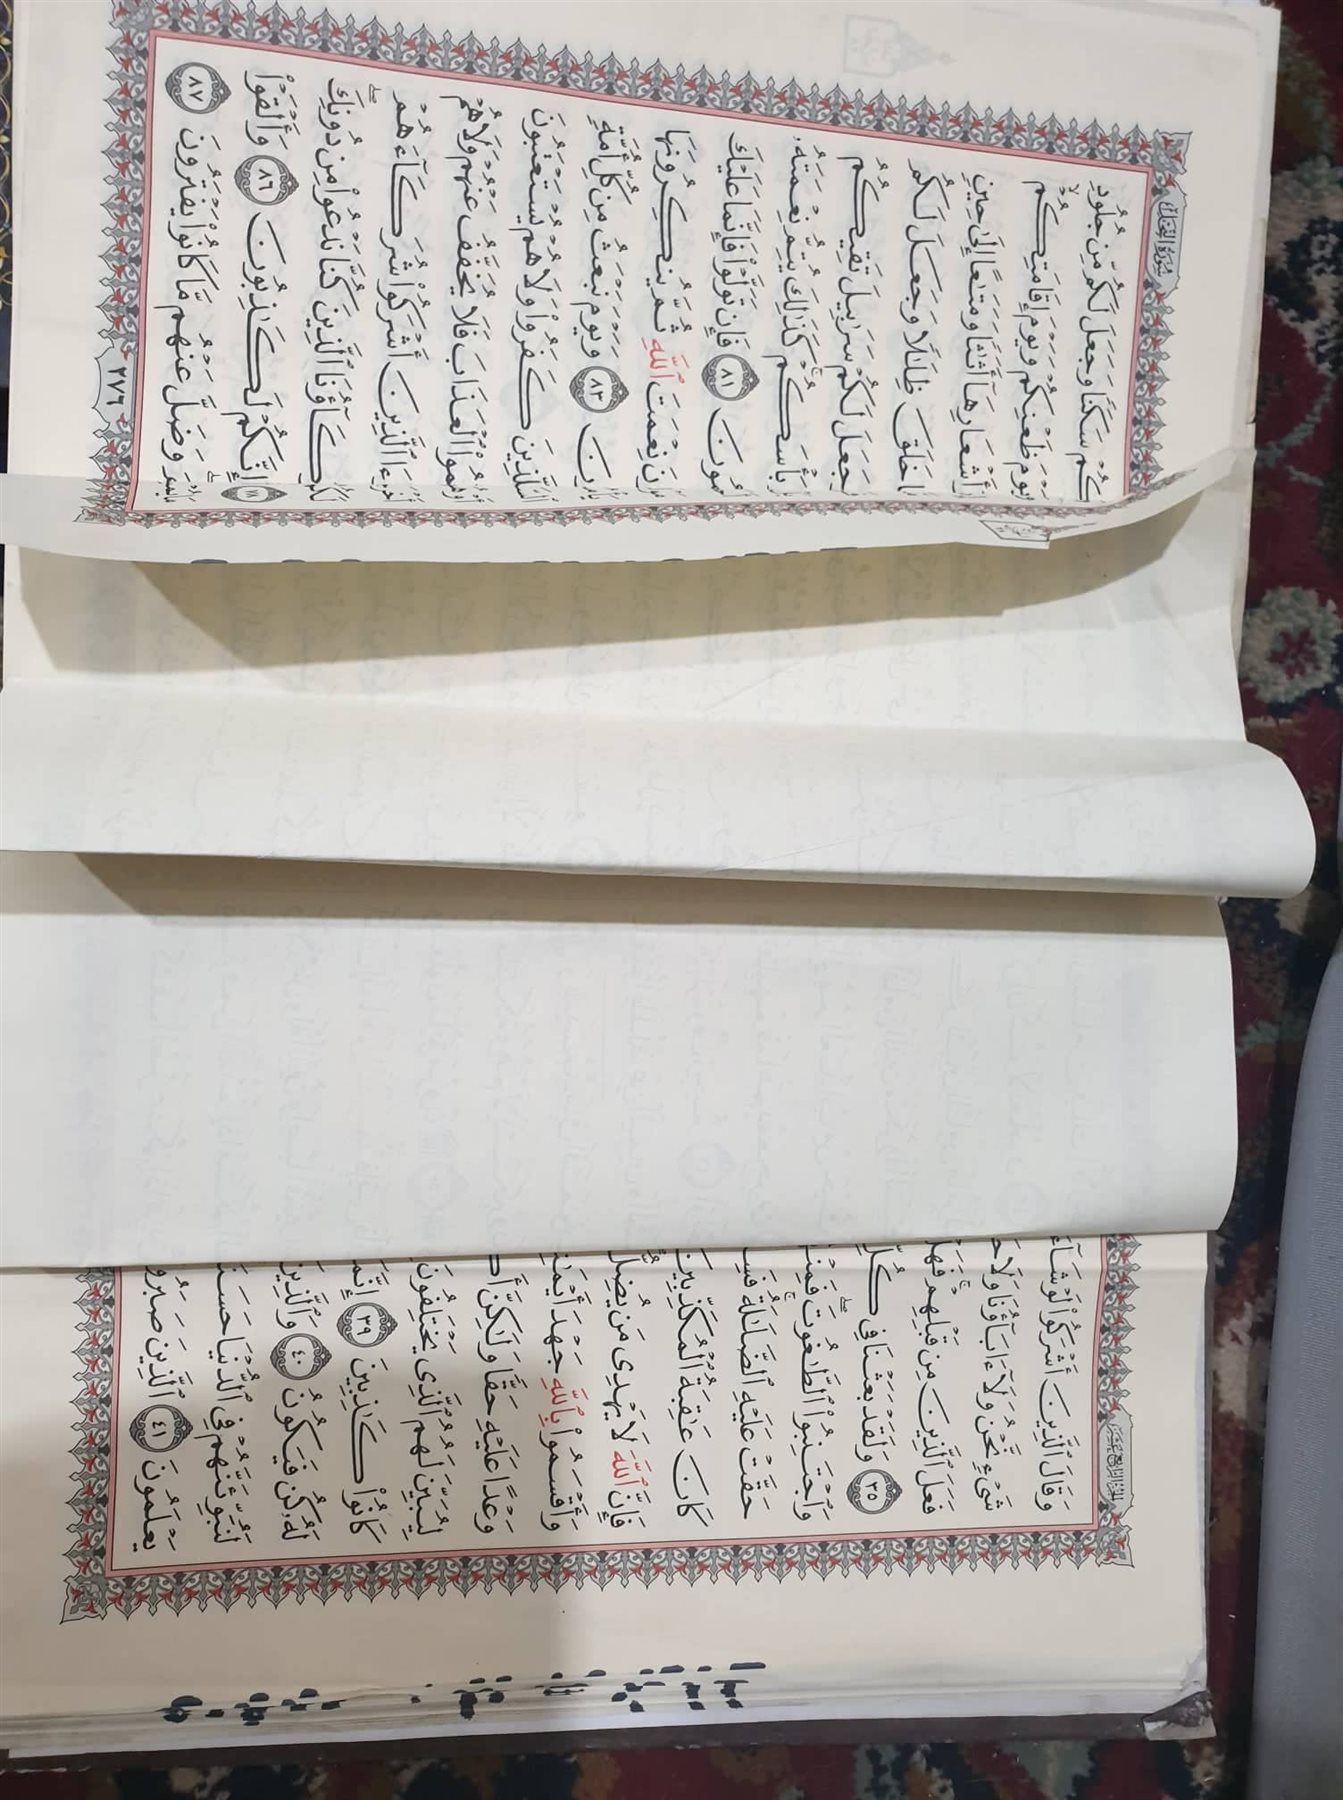 الجزء الرابع عشر
وَقَالَ ٱلَّذِينَ أَشْرَكُوا۟ لَوْ شَآءَ
شَىْءٍ نَّحْنُ وَلَآ ءَابَآؤُنَا وَلَا
فَعَلَ ٱلَّذِينَ مِن قَبْلِهِمْ ۚ فَهَلْ
٣٥ وَلَقَدْ بَعَثْنَا فِى كُلِّ
وَٱجْتَنِبُوا۟ ٱلطَّـٰغُوتَ ۖ
حَقَّتْ عَلَيْهِ ٱلضَّلَـٰلَةُ ۚ
كَانَ عَـٰقِبَةُ ٱلْمُكَذِّبِينَ
فَإِنَّ ٱللَّهَ لَا يَهْدِى مَن يُضِلُّ
وَأَقْسَمُوا۟ بِٱللَّهِ جَهْدَ
وَعْدًا عَلَيْهِ حَقًّا وَلَـٰكِنَّ
لِيُبَيِّنَ لَهُمُ ٱلَّذِى يَخْتَلِفُونَ
كَانُوا۟ كَـٰذِبِينَ ٣٩
لَهُۥ كُن فَيَكُونُ ٤٠ وَٱلَّذِينَ
لَنُبَوِّئَنَّهُمْ فِى ٱلدُّنْيَا
يَعْلَمُونَ ٤١ ٱلَّذِينَ
سورة النحل
سَكَنًا وَجَعَلَ لَكُم مِّن جُلُودِ
يَوْمَ ظَعْنِكُمْ وَيَوْمَ إِقَامَتِكُمْ ۙ
أَشْعَارِهَآ أَثَـٰثًا وَمَتَـٰعًا إِلَىٰ حِينٍ
خَلَقَ ظِلَـٰلًا وَجَعَلَ لَكُم
جَعَلَ لَكُمْ سَرَٰبِيلَ تَقِيكُمُ
بَأْسَكُمْ ۚ كَذَٰلِكَ يُتِمُّ نِعْمَتَهُۥ
٨١ فَإِن تَوَلَّوْا۟ فَإِنَّمَا عَلَيْكَ
نِعْمَتَ ٱللَّهِ ثُمَّ يُنكِرُونَهَا
٨٣ وَيَوْمَ نَبْعَثُ مِن كُلِّ أُمَّةٍ
لِلَّذِينَ كَفَرُوا۟ وَلَا هُمْ يُسْتَعْتَبُونَ
ٱلْعَذَابَ فَلَا يُخَفَّفُ عَنْهُمْ وَلَا هُمْ
ٱلَّذِينَ أَشْرَكُوا۟ شُرَكَآءَهُمْ
ٱلَّذِينَ كُنَّا نَدْعُوا۟ مِن دُونِكَ ۖ
إِنَّكُمْ لَكَـٰذِبُونَ ٨٦ وَأَلْقَوْا۟
وَضَلَّ عَنْهُم مَّا كَانُوا۟ يَفْتَرُونَ ٨٧
٢٧٦